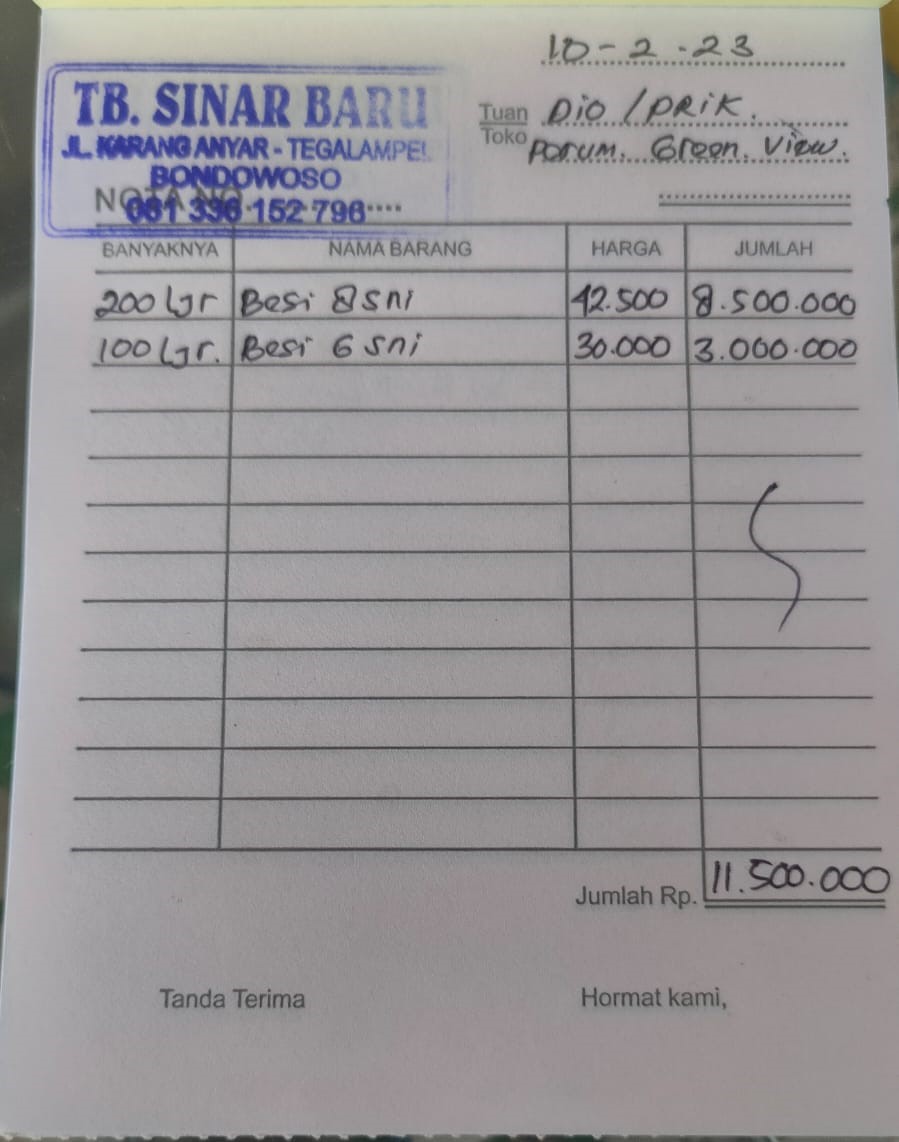 10-2-23
TB. SINAR BARU
JL. KARANG ANYAR - TEGALAMPEL
BONDOWOSO
081 336 152 796
Tuan
Toko
Dio / PRiK.
Perum. Green. View.
NOTA NO.
BANYAKNYA NAMA BARANG HARGA JUMLAH
200 Ljr Besi 8 sni 42.500 8.500.000
100 Ljr. Besi 6 sni 30.000 3.000.000
Jumlah Rp. 11.500.000
Tanda Terima Hormat kami,